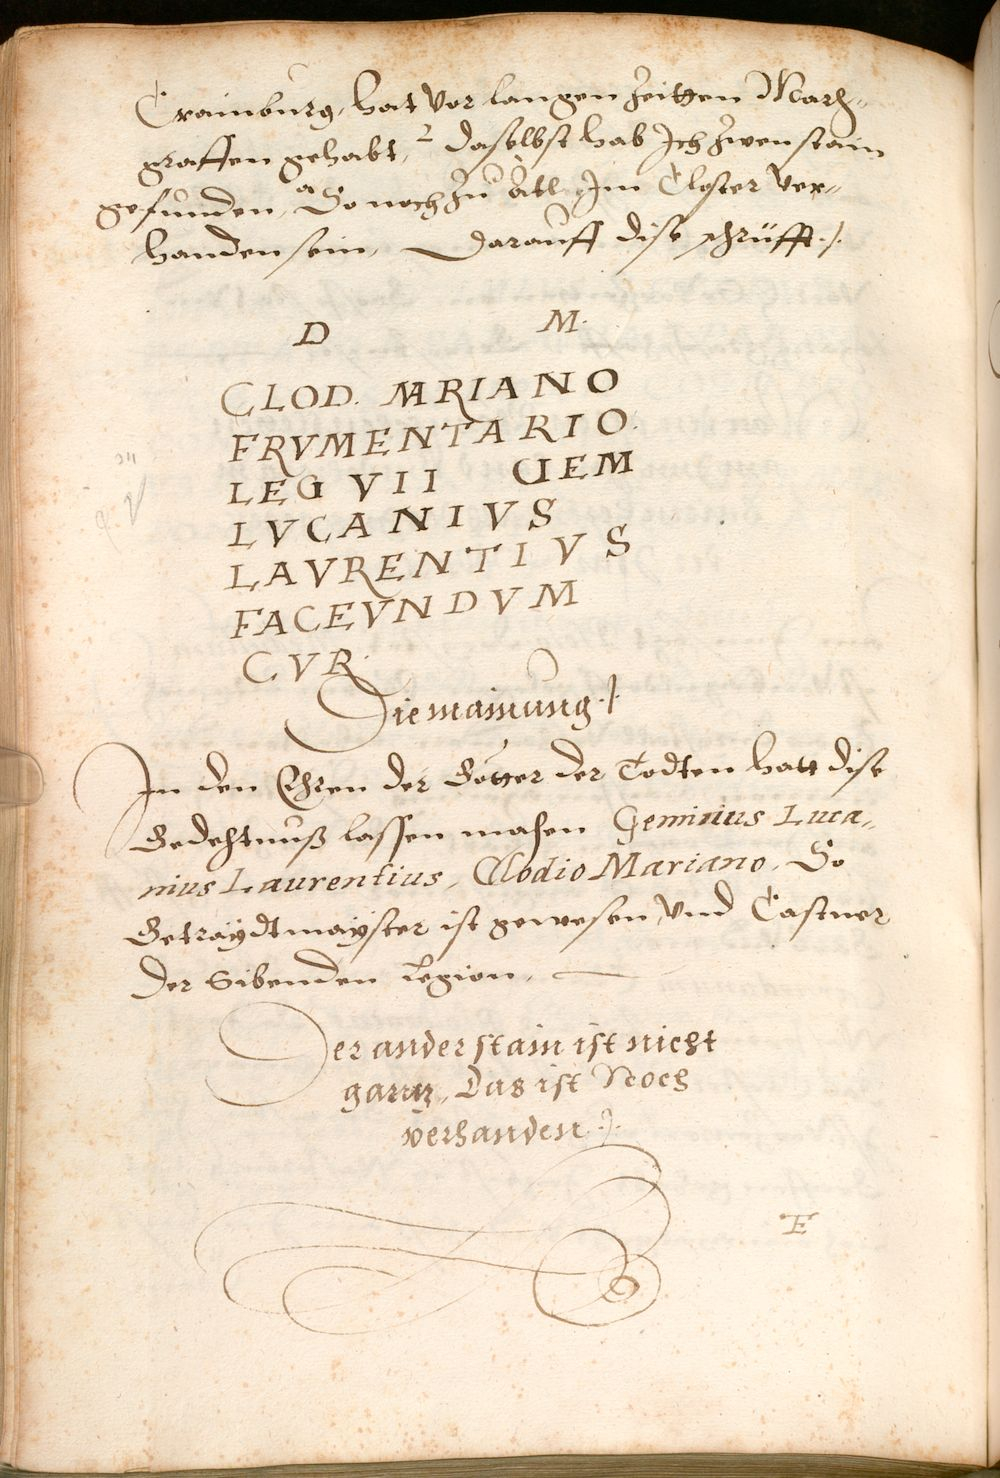 Crainburg, hat vor langen Zeitten Marg-
graffen gehabt, daselbst hab Ich Zwen stain
gefunden, So noch Zu Ätl Im Closter ver-
handen sein, Darauff dise schrüfft ./.
D M.
CLOD. MARIANO
FRVMENTARIO.
LEG VII GEM
LVCANIVS
LAVRENTIVS
FACEVNDVM
CVR.
Die mainung ./.
In den Ehren der Götter der Todten hatt dise
Gedechtnuß lassen machen Geminius Luca-
nius Laurentius, Clodio Mariano, So
Geträydtmayster ist gewesen Vnd Castner
der Sibenden Legion,
Der ander stain ist nicht
gantz, Das ist Noch
verhanden ./.
E